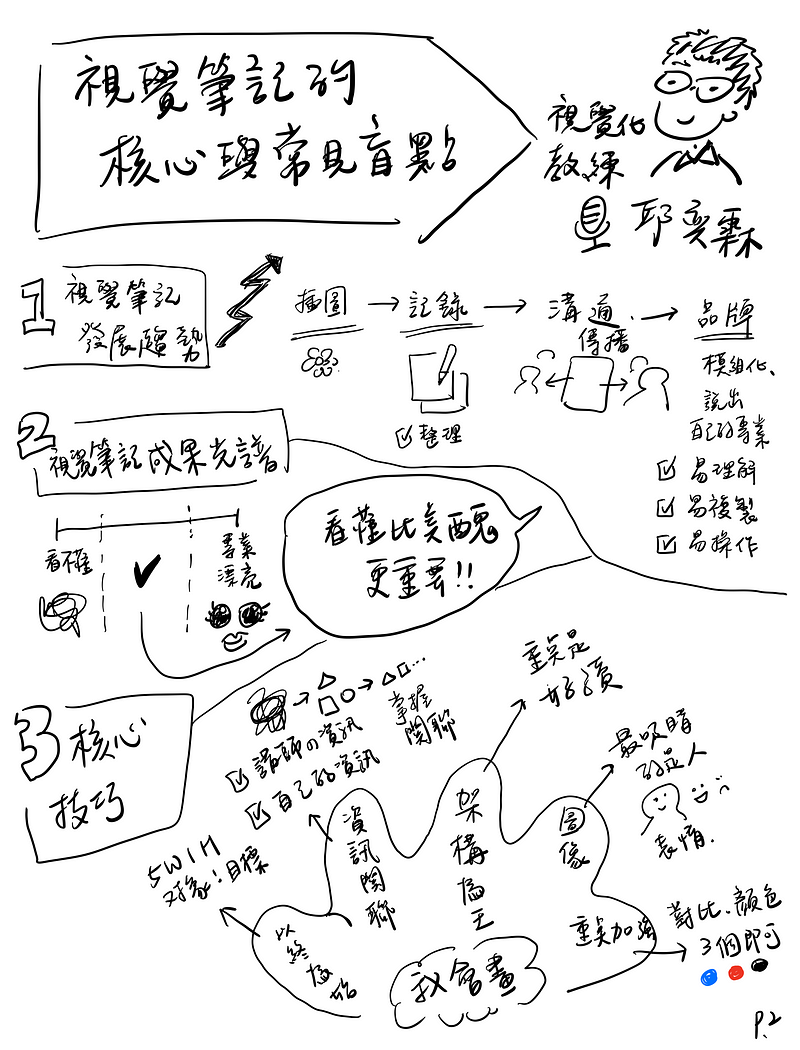 視覺筆記的
核心與常見盲點
視覺化
教練
邱奕霖
1 視覺筆記
發展趨勢
插圖 → 記錄 → 溝通.傳播 → 品牌
整理
模組化、
說出
自己的專業
易理解
易複製
易操作
2 視覺筆記成果光譜
看不懂
專業
漂亮
看懂比美醜
更重要!!
3 核心
技巧
掌握
關聯
講師の資訊
自己的資訊
重點是
好讀
最吸睛
的是人
表情.
5W1H
对象!目標
以終為始
資訊關聯
架構為王
圖像
重點加強
對比.顏色
3個即可
我會畫
P.2